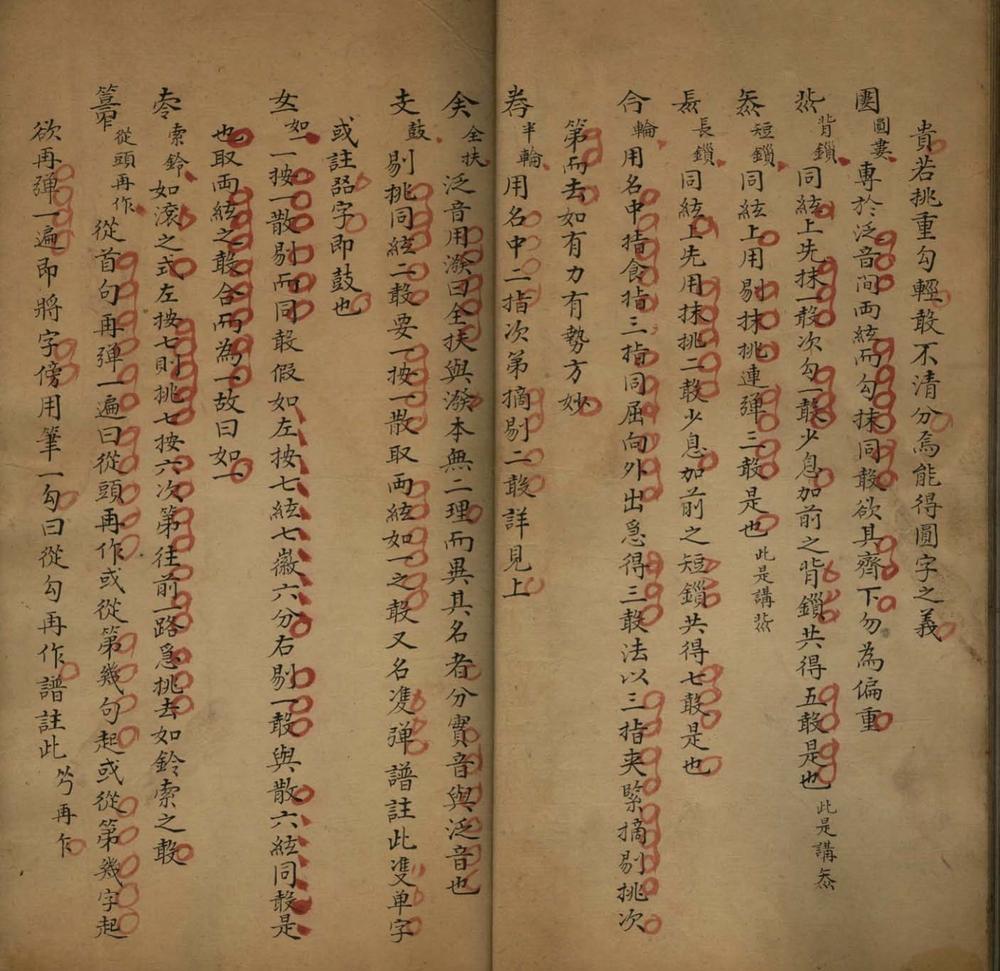 貴若挑重勾輕敢不清分焉能得圓字之義
圓婁專於泛音間両絃而勾抹同敢欲其齊下勿為偏重
背鎖同絃上先抹一敢次勾一敢少息加前之背鎖共得五敢是也此是講
短鎖同絃上用剔抹挑連彈三敢是也此是講
長鎖同絃上先用抹挑二敢少息加前之短鎖共得七敢是也
合輪用名中指食指三指同屈向外出急得三敢法以三指夾緊摘剔挑次
第而去如有力有勢方妙
半輪用名中二指次第摘剔二敢詳見上
全扶泛音用潑曰全扶與潑本無二理而異其名者分實音與泛音也
支鼓剔挑同絃二敢要一按一散取両絃如一之敢又名雙弹譜註此雙单字
或註字即鼓也
如一一按一散剔而同敢假如左按七絃七徽六分右剔一敢與散六絃同敢是
也取両絃之敢合而為一故曰如一
索鈴如滾之式左按七則挑七按六次第往前一路急挑去如鈴索之敢
從頭再作從首句再弾一遍曰從頭再作或從第幾句起或從第幾字起
欲再弾一遍即將字傍用筆一勾曰從勾再作譜註此再乍